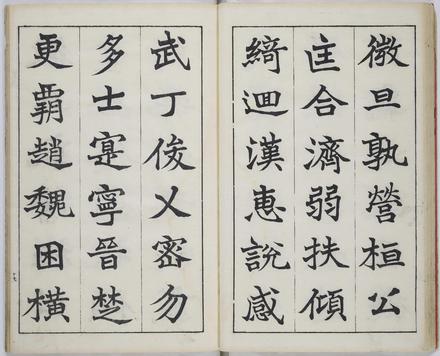 微旦孰營桓公
匡合濟弱扶傾
綺迴漢惠說感
武丁俊乂密勿
多士寔寧晉楚
更覇趙魏困橫